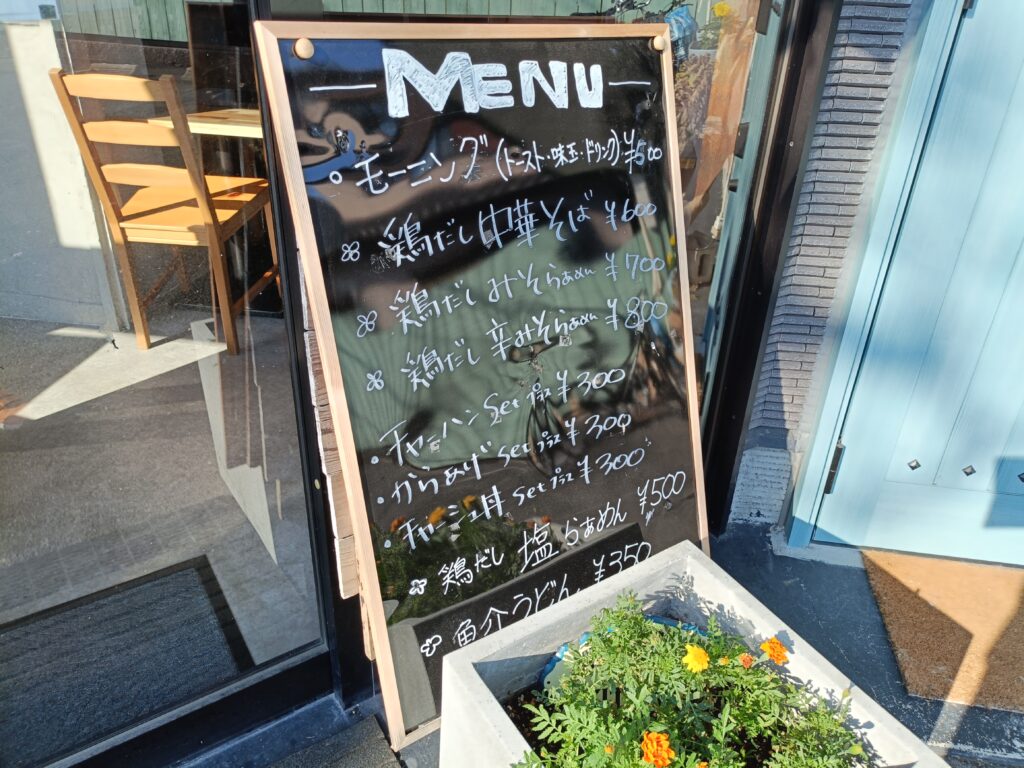 MENU
モーニング(トースト・味玉・ドリンク)¥500
鶏だし中華そば ¥600
鶏だし みそらぁめん ¥700
鶏だし 辛みそらぁめん ¥800
・チャーハン Set プラス ¥300
・からあげ set プラス ¥300
・チャーシュ丼 Set プラス ¥300
鶏だし 塩らぁめん ¥500
魚介うどん ¥350